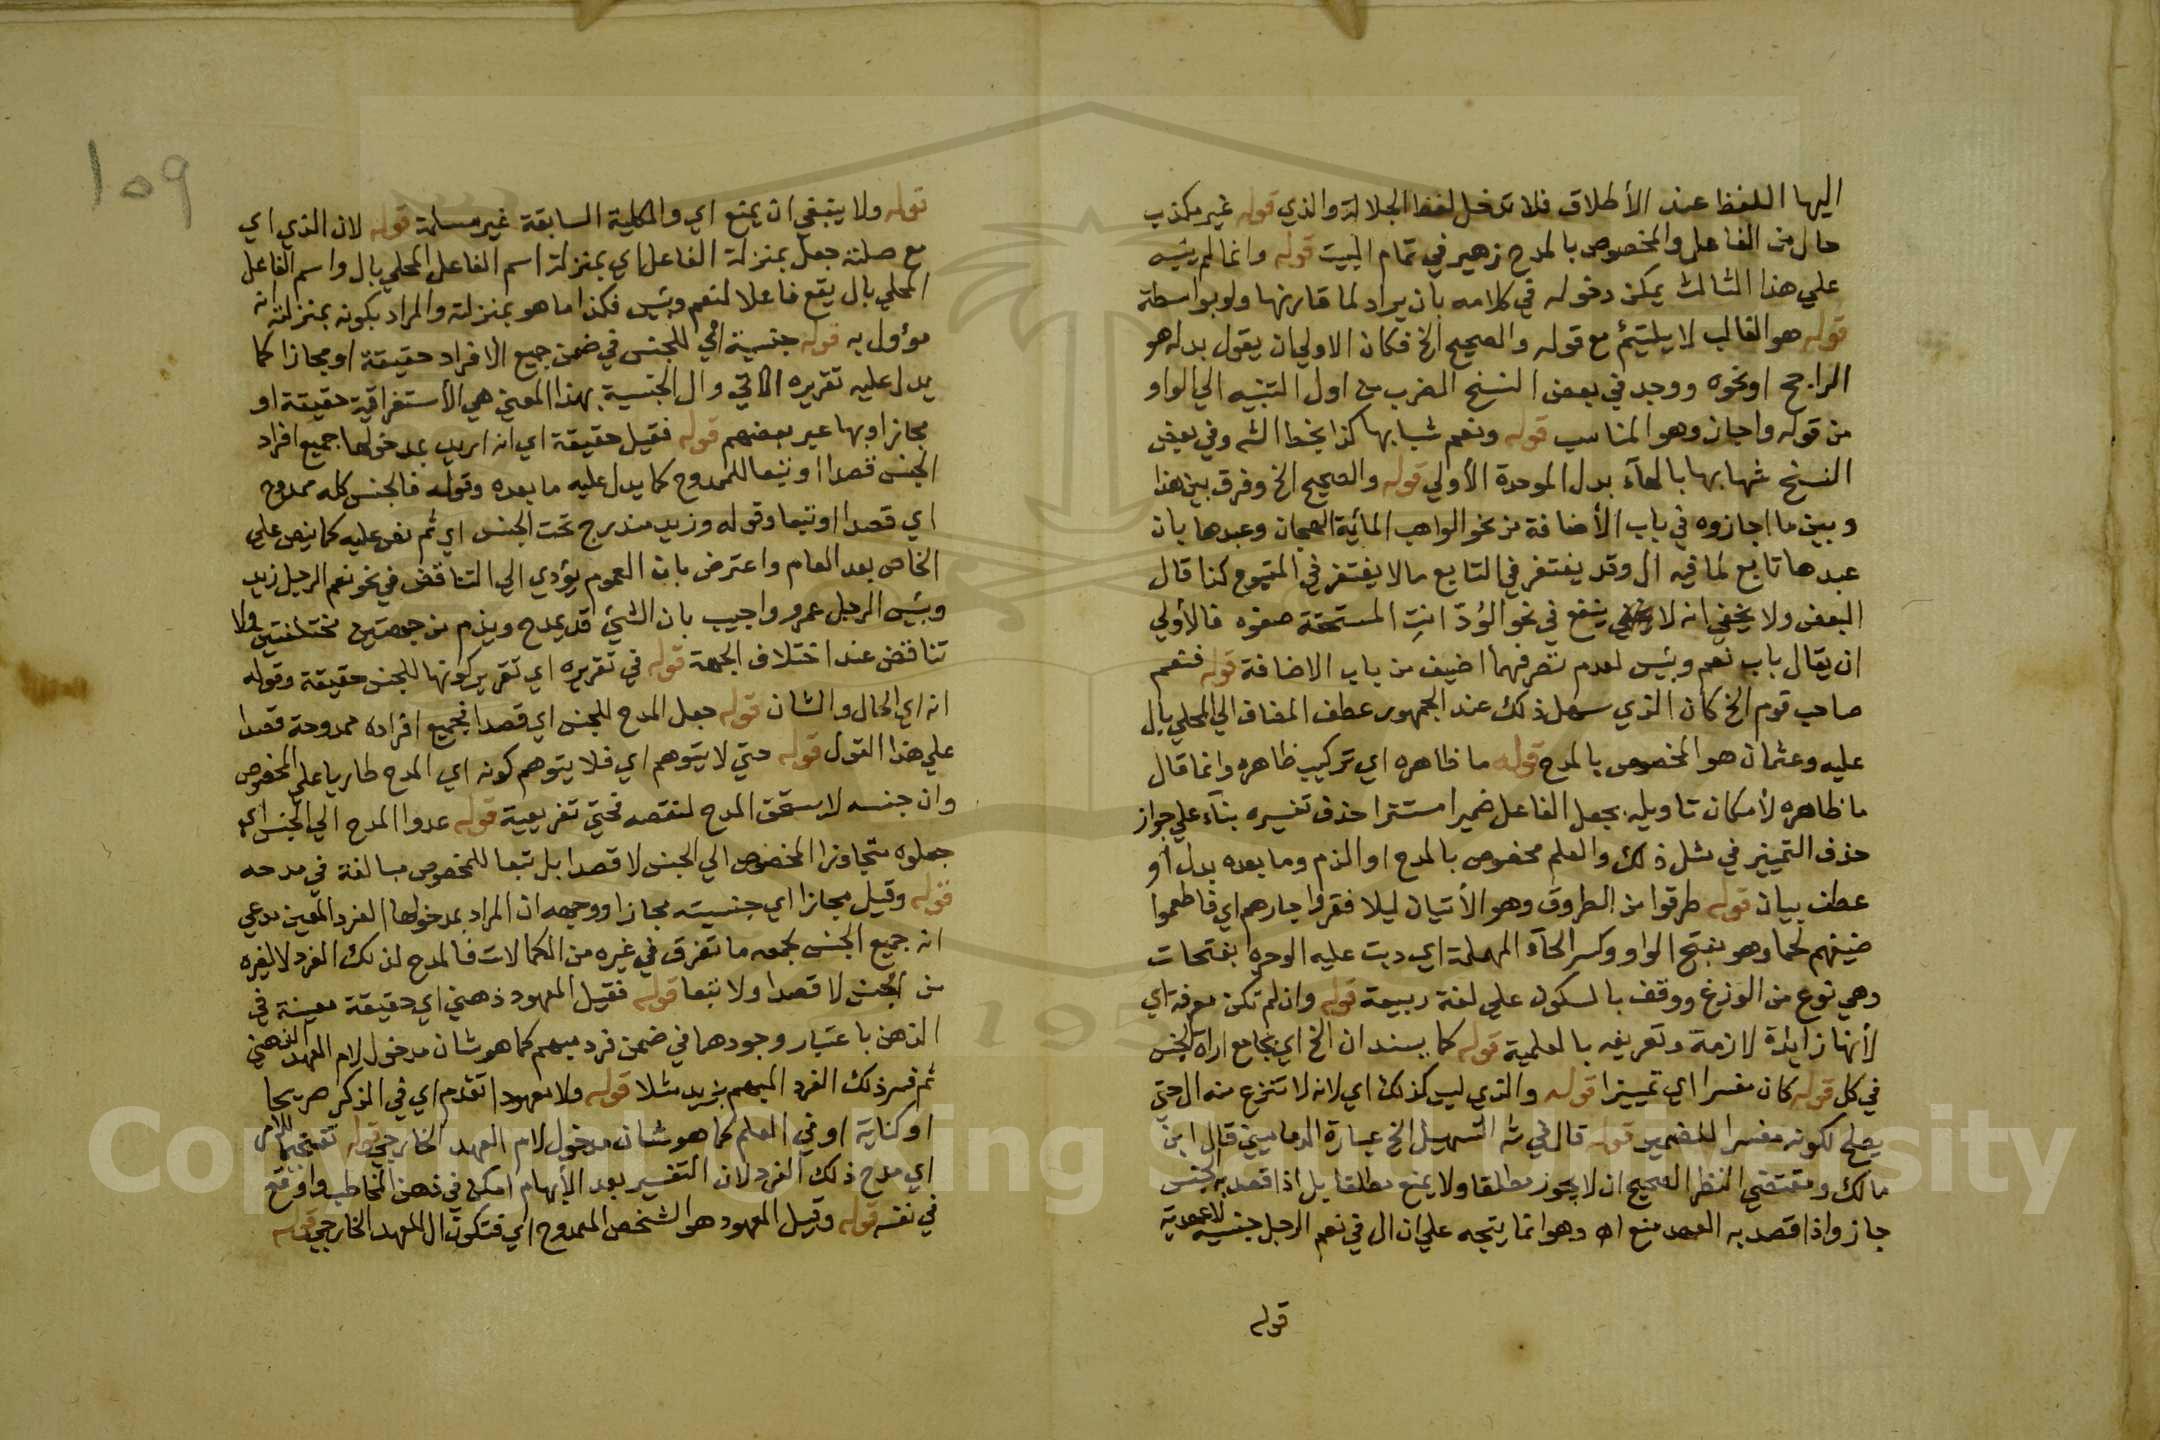 اليها اللفظ عند الأطلاق فلا تدخل لفظ الجلالة والذي قوله غير مكذب
حال من الفاعل والمخصوص بالمدح زهير في تمام البيت قوله وانما لم ينبه
علي هذا الثالث يمكن دخوله في كلامه بان يراد لما قارنها ولو بواسطة
قوله هو الغالب لا يلتيئم مع قوله والصحيح الخ فكان الاولي ان يقول بدله هو
الراجح او نحوه ووجد في بعض النسخ الضرب من اول التنبيه الي الواو
من قوله واجاز وهو المناسب قوله ونعم شبابها كذا بخط الشه وفي بعض
النسخ شهابها بالهآء بدل الموحدة الأولي قوله والصحيح الخ وفرق بين هذا
وبين ما اجازوه في باب الأضافة من نحو الواهب المائية الهجان وعبدها بان
عبدها تابع لما فيه ال وقد يغتفر في التابع ما لا يغتفر في المتبوع كذا قال
البعض ولا يخفي انه لا ينفع في نحو الوُدّ انتِ المستحقة صفوه فالأولي
ان يقال باب نعم وبئس لعدم تصرفهما اضيف من باب الاضافة قوله فنعم
صاحب قوم الخ كان الذي سهل ذلك عند الجمهور عطف المضاف الي المحلي بال
عليه وعثمان هو المخصوص بالمدح قوله ما ظاهره اي تركيب ظاهره وانما قال
ما ظاهره لأمكان تاويله بجعل الفاعل ضميرا مستترا حذف تفسيره بنآء علي جواز
حذف التمييز في مثل ذلك والعلم مخصوص بالمدح او الذم وما بعده بدل أو
عطف بيان قوله طرقوا من الطروق وهو الأتيان ليلا فقروا جارهم اي فاطعموا
ضيفهم لحما وهو بفتح الواو وكسر الحآء المهملة اي دبت عليه الوحره بفتحات
وهي نوع من الوزغ ووقف بالسكون علي لغة ربيعة قوله وان لم تكن معرفة اي
لأنها زائدة لازمة وتعريفه بالعلمية قوله كما يسند ان الخ اي بجامع ارادة الجنس
في كل قوله كان مفسرا اي تمييزا قوله والذي ليس كذلك اي لانه لا تنزع منه ال حتي
يصلح لكونه مفسرا للضمير قوله قال في شه التسهيل الخ عبارة الدماميني قال ابن
مالك ومقتضي النظر الصحيح ان لا يجوز مطلقا ولا يمنع مطلقا بل اذا قصد به الجنس
جاز واذا قصد به العهد منع اه وهو انما يتجه علي ان ال في نعم الرجل جنسية لا عهدية
قوله
١٥٩
قوله ولا ينبغي ان يمنع اي والكلية السابقة غير مسلمة قوله لان الذي اي
مع صلته جعل بمنزلة الفاعل اي بمنزلة اسم الفاعل المحلي بال واسم الفاعل
المحلي بال يقع فاعلا لنعم وبئس فكذا ما هو بمنزلته والمراد بكونه بمنزلته انه
مؤول به قوله جنسية اي للجنس في ضمن جميع الافراد حقيقة او مجازا كما
يدل عليه تقريره الآتي وال الجنسية بهذا المعني هي الأستغراقية حقيقة او
مجازا وبها عبر بعضهم قوله فقيل حقيقة اي انه اريد بمدخولها جميع افراد
الجنس قصدا او تبعا للممدوح كما يدل عليه ما بعده وقوله فالجنس كله ممدوح
اي قصدا او تبعا وقوله وزيد مندرج تحت الجنس اي ثم نص عليه كما ينص علي
الخاص بعد العام واعترض بان العموم يؤدي الي التناقض في نحو نعم الرجل زيد
وبئس الرجل عمرو واجيب بان الشيئ قد يمدح ويذم من جهتين مختلفتين ولا
تناقض عند اختلاف الجهة قوله في تقريره اي تقرير كونها للجنس حقيقة وقوله
انه اي الحال والشان قوله جعل المدح للجنس اي قصدا فجميع افراده ممدوحة قصدا
علي هذا القول قوله حتي لا يتوهم اي فلا يتوهم كونه اي المدح طاريا علي المخصوص
وان جنسه لا يستحق المدح لنقصه فحتي تفريعية قوله عدوا المدح الي الجنس اي
جعلوه متجاوزا المخصوص الي الجنس لا قصدا بل تبعا للمخصوص مبالغة في مدحه
قوله وقيل مجازا اي جنسيته مجازا ووجهه ان المراد بمدخولها الفرد المعين مدعي
انه جميع الجنس لجمعه ما تفرق في غيره من الكمالات فالمدح لذلك الفرد لا لغيره
من الجنس لا قصدا ولا تبعا قوله فقيل المعهود ذهني اي حقيقة معينة في
الذهن باعتبار وجودهما في ضمن فرد مبهم كما هو شان مدخول لام العهد الذهني
ثم فسر ذلك الفرد المبهم بزيد مثلا قوله ولا معهود اتقدم اي في الذكر صريحا
او كناية او في العلم كما هو شان مدخول لام العهد الخارجي قوله تفخيما للامر
اي مدح ذلك الفرد لان التفسير بعد الأبهام امكن في ذهن المخاطب واوقع
في نفسه قوله وقيل المعهود هو الشخص الممدوح اي فتكون ال للعهد الخارجي قوله
Copyright © King Saud University